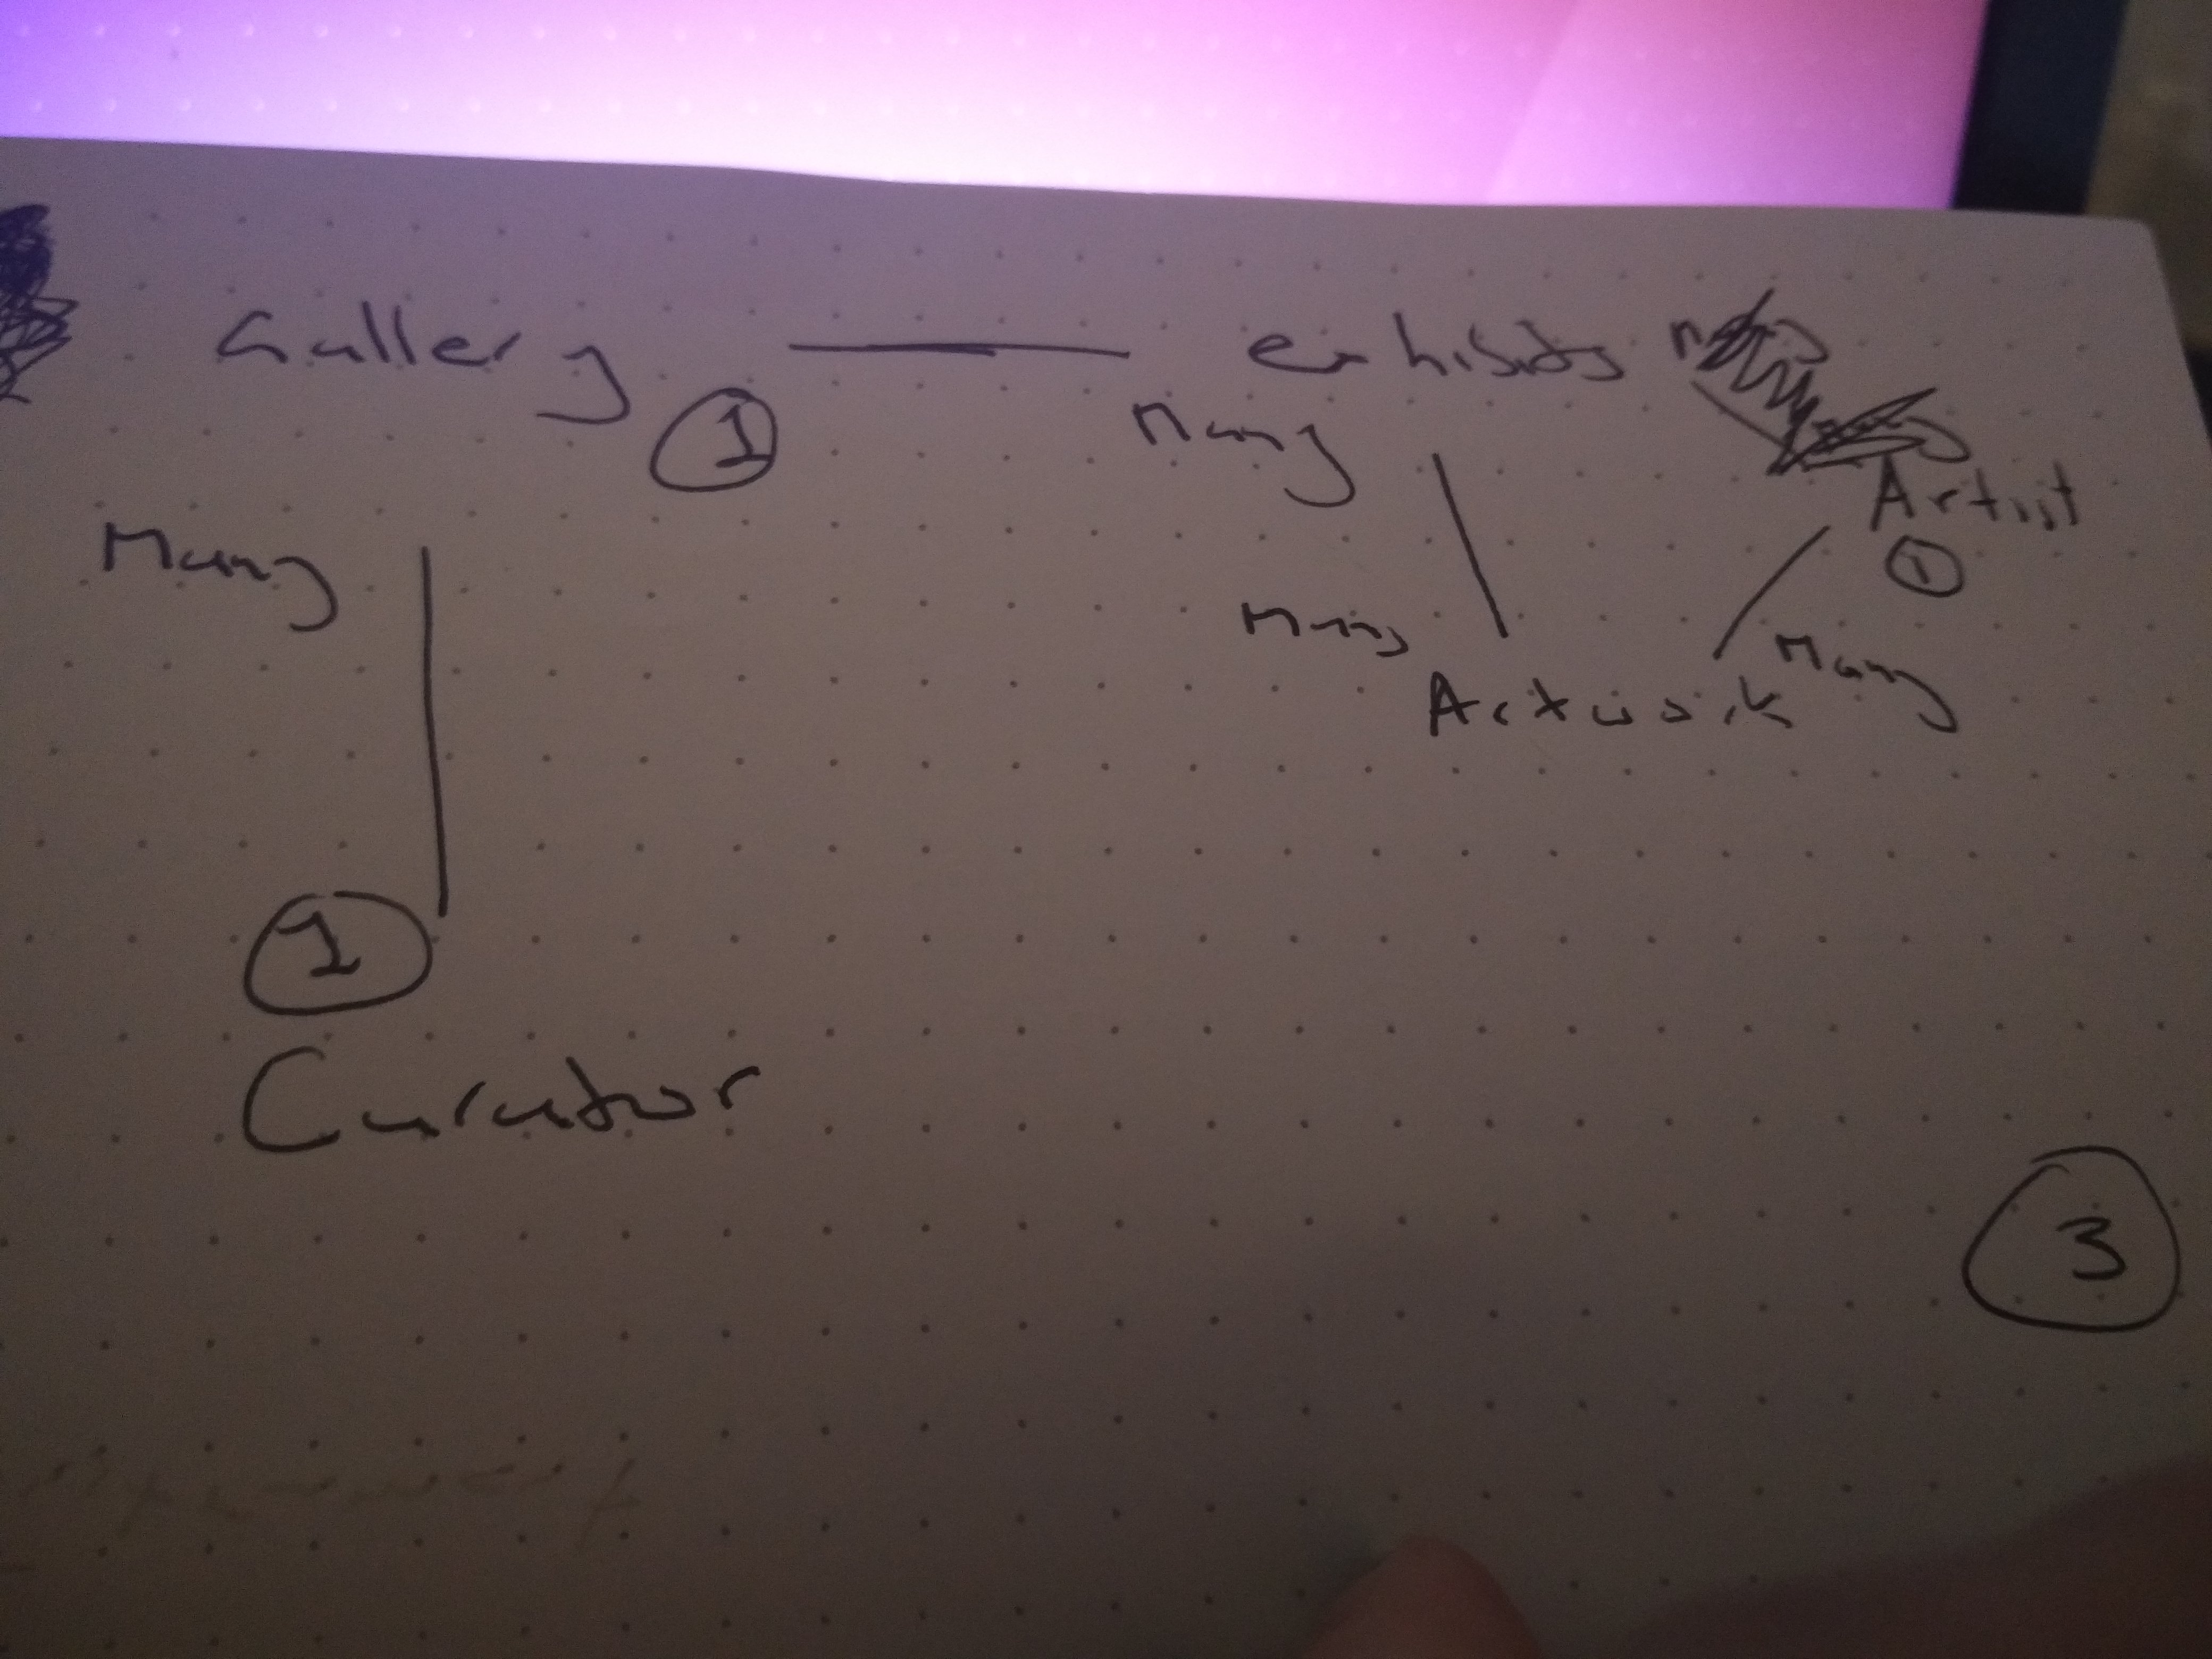 Gallery exhibits
1 Many
Artist
Many 1
Many Many
Artwork
1
Curator
3